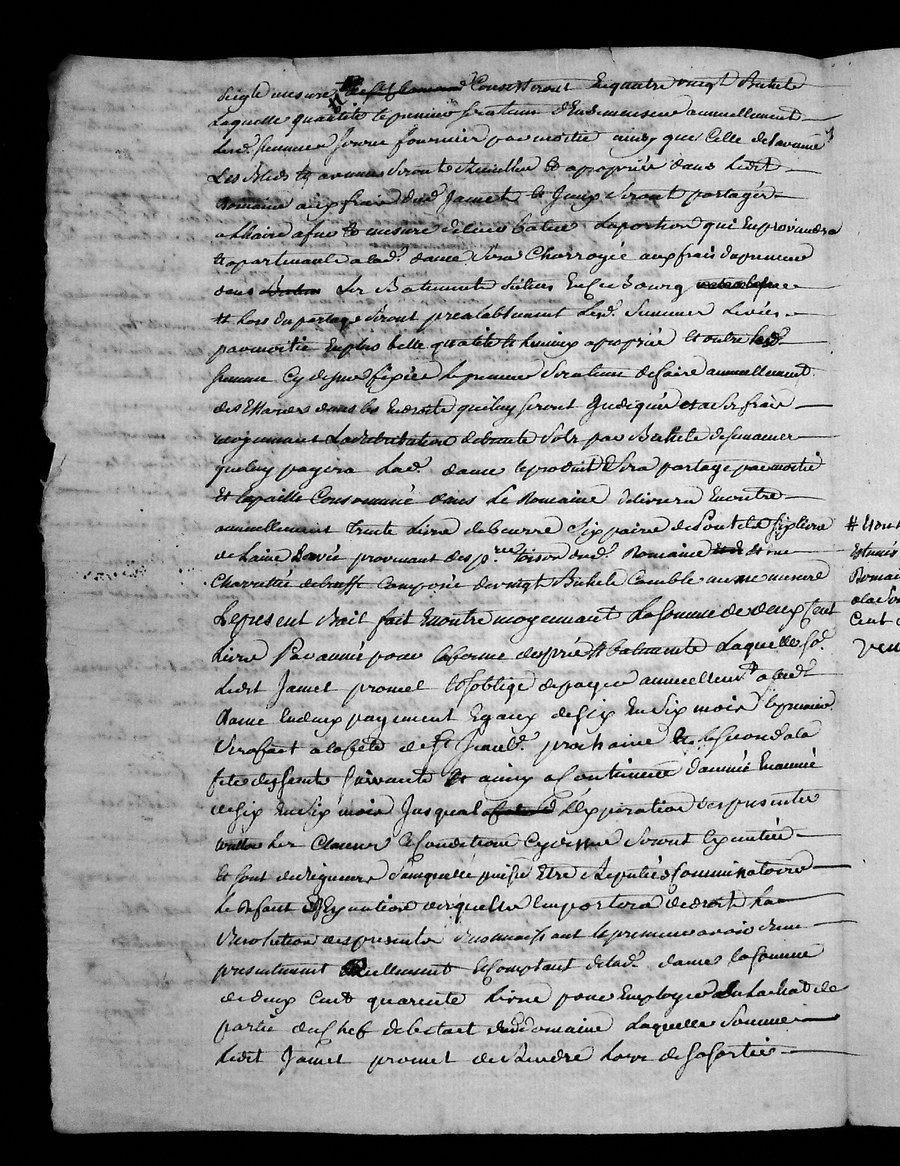 Seigle mesure Consisteront En quatre vingt Bichets
Laquelle quantité le preneur sera tenu D'Ensemencer annuellement
Lesd. semences seront fournies par moitié ainsy que Celle de l'avoine
Les Bleds & avoines seront Cueillies & apropriés dans Ledit
Domaine aux frais dud. Jamet & Jceux Seront partagés
a L'haire a fur & mesure Labattue La portion qui En proviendra
& apartenante a lad. dame Sera Charroyée aux frais du preneur
dans Les Batiments En Ce Bourg
& Lors du partage Seront prealablement Lesd. Semences Levées
par moitié En plus belle qualité & Et outre Lesd.
semences Cy dessus fixées Le preneur Sera tenu de faire annuellement
des Essarts dans les Endroits qui luy seront Yndiqués et a ses frais
moyennant La retribution de trente Sols par Bichets de semence
que luy payera Lad. dame le produit Sera partagé par moitié
Et la paille Consommée dans Le Domaine delivrera En outre
annuellement Trente Livre de beurre Six paire de Poulets Six livre
de Laine Lavée provenant des dud. Domaine & une
Charretée de Composée de vingt Bichets Comble meme mesure
Le present Bail fait En outre moyennant La somme de deux Cent
Livre Par année pour la ferme des prés & batiments Laquelle so.
Ledit Jamet promet & s'oblige de payer annuellement a lad.
Dame En deux payement Egaux de Six En Six mois le premier
Sera fait a la fete de St Jean B. prochaine & le second a la
fete des Saints Suivante & ainsy a Continuer d'année En année
de Six En Six mois Jusqua L'Expiration des presentes
Les Clauses & Conditions Cy dessus Seront Executées
Et sont de rigueurs Sans quelle puisse Etre Reputées Comminatoire
Le Defaut D'Execution desquelles Emportera de droit La
Resolution des presentes Reconnoissant le preneur avoir Reçu
presentement Reellement & Comptant de lad. dame la somme
de deux Cent quarente Livre pour Employer a L'achat de
partie du Chef de betail dud. Domaine Laquelle Somme
Ledit Jamet promet de Rendre Lors de sa sortie
Domai
Cent